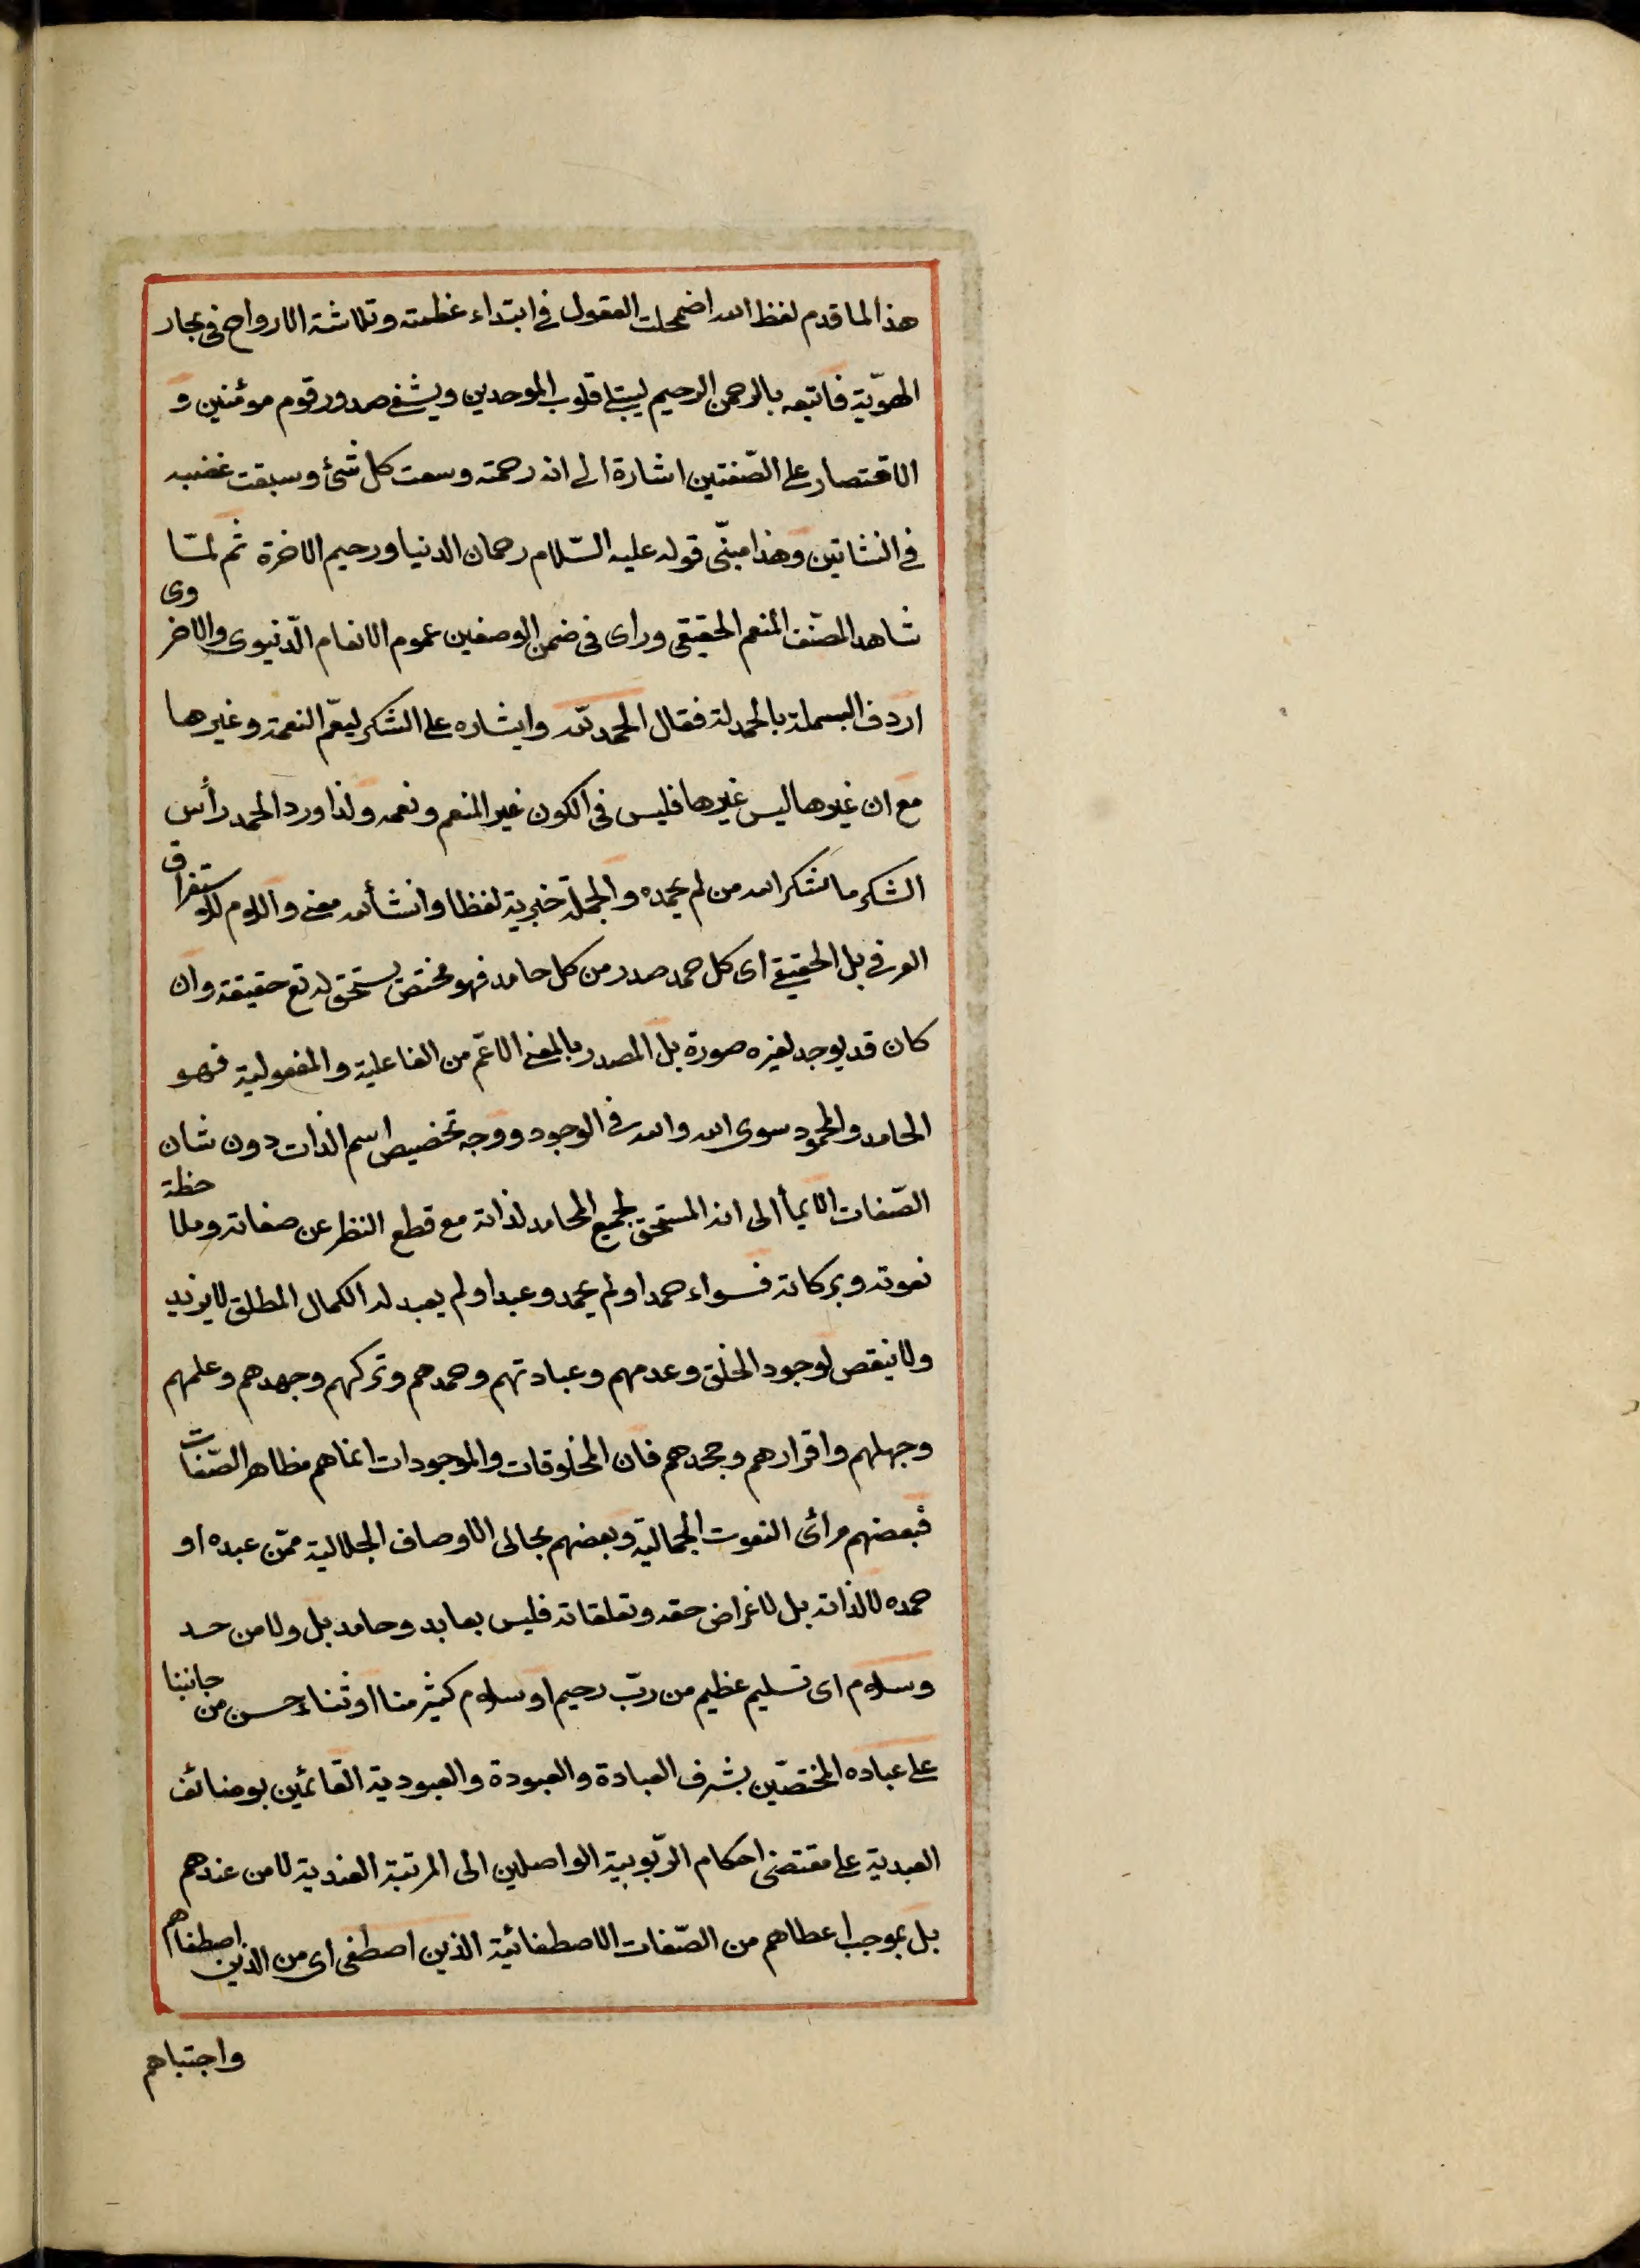 هذا لما قدم لفظ الله اضمحلت العقول في ابتداء عظمته وتلاشته الارواح في بحار
الهويّة فاتبعه بالرحمن الرحيم ليبتلى قلوب الموحدين ويشفى صدور قوم مؤمنين و
الاقتصار على الصّفتين اشارة الى انه رحمته وسعت كل شئ وسبقت غضبه
في النشاتين وهذا مبنّى قوله عليه السّلام رحمان الدنيا ورحيم الاخرة ثم لمّا
شاهد المصّنف المنعم الحقيقى وراى فى ضمن الوصفين عموم الانعام الدّنيوى والاخروى
اردف البسملة بالحمدلة فقال الحمد لله وايشاره على الشكر ليعمّ النعمة وغيرها
مع ان غيرها ليس غيرها فليس فى الكون غير المنعم ونعمه ولذا ورد الحمد رأس
الشكر ما شكر الله من لم يحمده والجملة خبرية لفظا وانشأيه معنى واللام للاستغراق
العرفى بل الحقيقى اى كل حمد صدر من كل حامد فهو مختص يستحق له تع حقيقة وان
كان قد يوجد لغيره صورة بل المصدر بالمعنى الاعّم من الفاعلية والمفعولية فهو
الحامد والمحمود سوى الله والله فى الوجود ووجه تخصيص اسم الذات دون شان
الصّفات الايمأ الى انه المستحق لجميع المحامد لذاته مع قطع النظر عن صفاته وملاحظة
نعوته وبركاته فسواء حمد او لم يحمد وعبد او لم يعبد له الكمال المطلق لا يزيد
ولا ينقص لوجود الخلق وعدمهم وعبادتهم وحمدهم وتركهم وجهدهم وعلمهم
وجهلهم واقرارهم وجحدهم فان المخلوقات والموجودات انما هم مظاهر الصّفات
فبعضهم مرأى النعوت الجمالية وبعضهم مجالى الاوصاف الجلالية ممّن عبده او
حمده لا لذاته بل لاغراض حقه وتعلقاته فليس بعابد وحامد بل ولا من حسد
وسلام اى تسليم عظيم من ربّ رحيم او سلام كثير منا او ثناء حسن من جانبنا
على عباده المختصّين بشرف العبادة والعبودة والعبودية القائمين بوضائف
العبدية على مقتضى احكام الرّبوبية الواصلين الى المرتبة العندية لا من عندهم
بل بموجب اعطاهم من الصّفات الاصطفائية الذين اصطفى اى من الذين اصطفاهم
واجتباهم